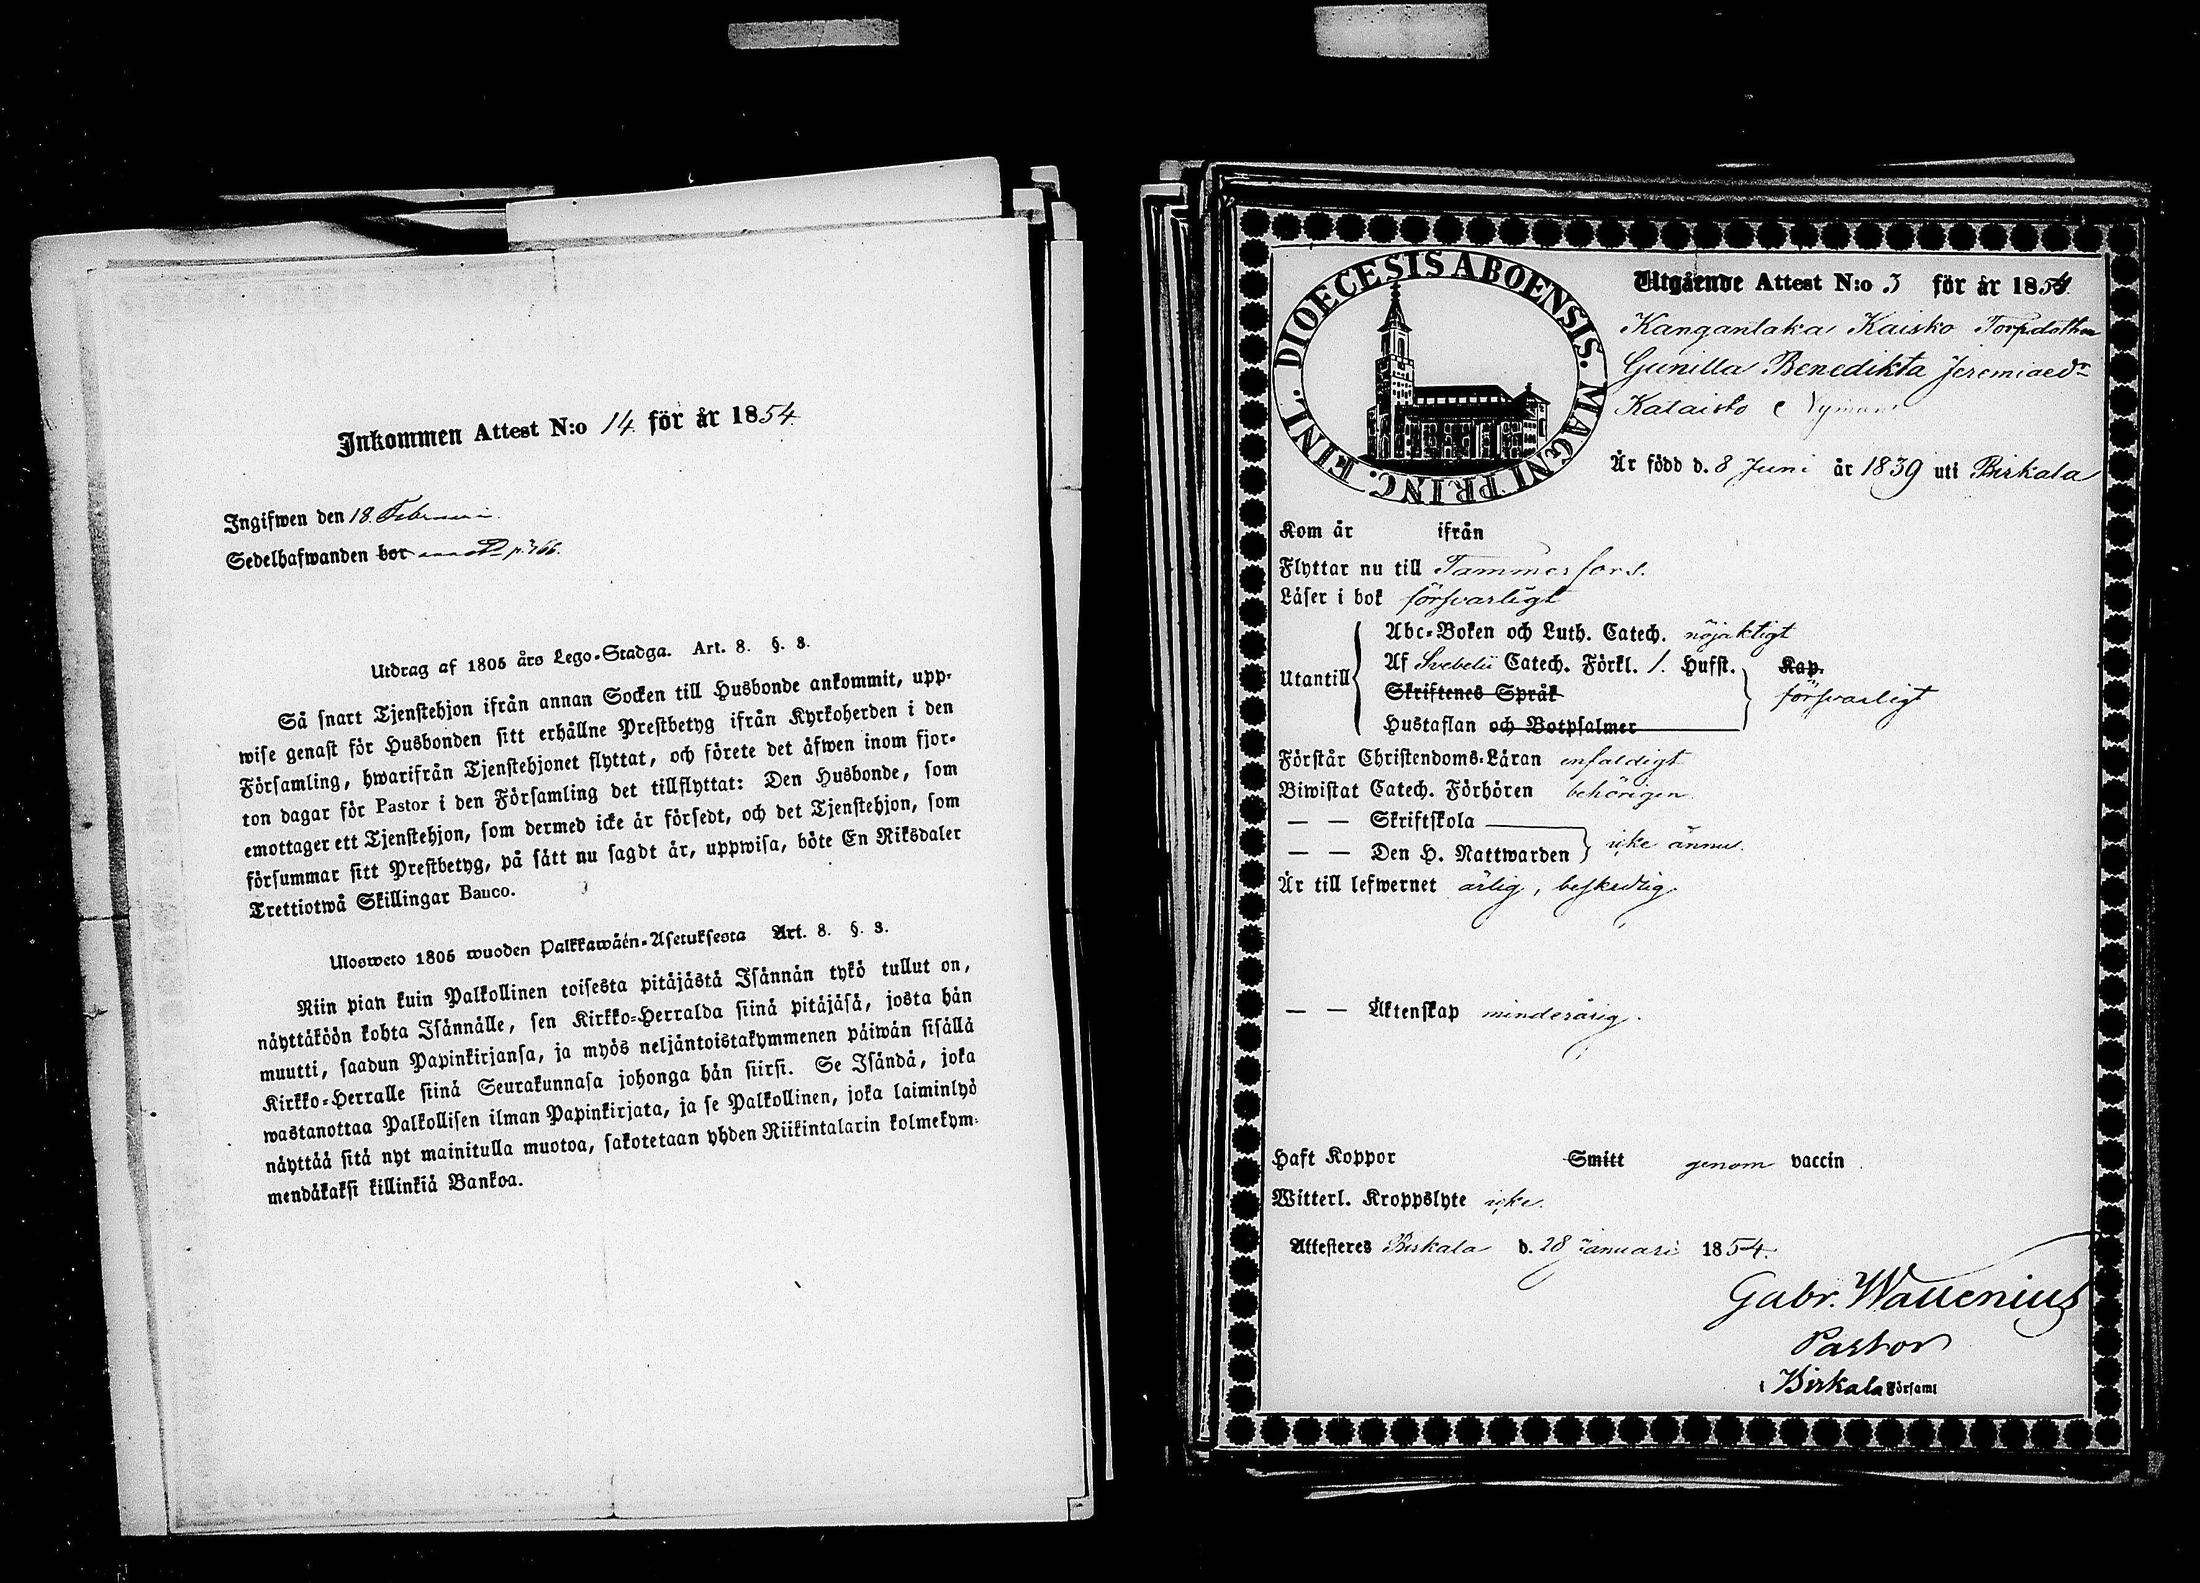 Inkommen Attest N:o 14 för år 1854.
Ingifwen den 18. Februari
Sedelhafwanden bor p. 766.
Utdrag af 1805 års Lego-Stadga. Art. 8. §. 8.
Så snart Tjenstehjon ifrån annan Socken till Husbonde ankommit, upp-
wise genast för Husbonden sitt erhållne Prestbetyg ifrån Kyrkoherden i den
Församling, hwarifrån Tjenstehjonet flyttat, och förete det äfwen inom fjor-
ton dagar för Pastor i den Församling det tillflyttat: Den Husbonde, som
emottager ett Tjenstehjon, som dermed icke är försedt, och det Tjenstehjon, som
försummar sitt Prestbetyg, på sätt nu sagdt är, uppwisa, böte En Riksdaler
Trettiotwå Skillingar Banco.
Ulosweto 1805 wuoden Palkkawäén-Asetuksesta Art. 8. §. 8.
Niin pian kuin Palkollinen toisesta pitäjästä Isännän tykö tullut on,
näyttäköön kohta Isännälle, sen Kirkko-Herralda siinä pitäjäsä, josta hän
muutti, saadun Papinkirjansa, ja myös neljäntoistakymmenen päiwän sisällä
Kirkko-Herralle siinä Seurakunnasa johonga hän siirsi. Se Isändä, joka
wastanottaa Palkollisen ilman Papinkirjata, ja se Palkollinen, joka laiminlyö
näyttää sitä nyt mainitulla muotoa, sakotetaan yhden Riikintalarin kolmekym-
mendäkaksi killinkiä Bankoa.
DIOECESIS ABOENSIS. MAGNI PRINC. FINL.
Utgående Attest N:o 3 för år 1854.
Kangantaka Kaisko Torpdottren
Gunilla Benedikta Jeremiaedr
Kataisto Nyman
Är född d. 8 Juni år 1839 uti Birkala
Kom år ifrån
Flyttar nu till Tammerfors.
Läser i bok försvarligt
Utantill
Abc-Boken och Luth. Catech. nöjaktigt
Af Svebelii Catech. Förkl. 1. Hufst. Kap.
Skriftenes Språk försvarligt
Hustaflan och Botpsalmer
Förstår Christendoms-Läran enfaldigt
Biwistat Catech. Förhören behörigen
— — Skriftskola
— — Den H. Nattwarden icke ännu.
Är till lefwernet ärlig, beskedlig
— — Äktenskap minderårig.
Haft Koppor Smitt genom vaccin
Witterl. Kroppslyte icke.
Attesteres Birkala d. 28 Januari 1854.
Gabr. Wallenius
Pastor
i Birkala Församl